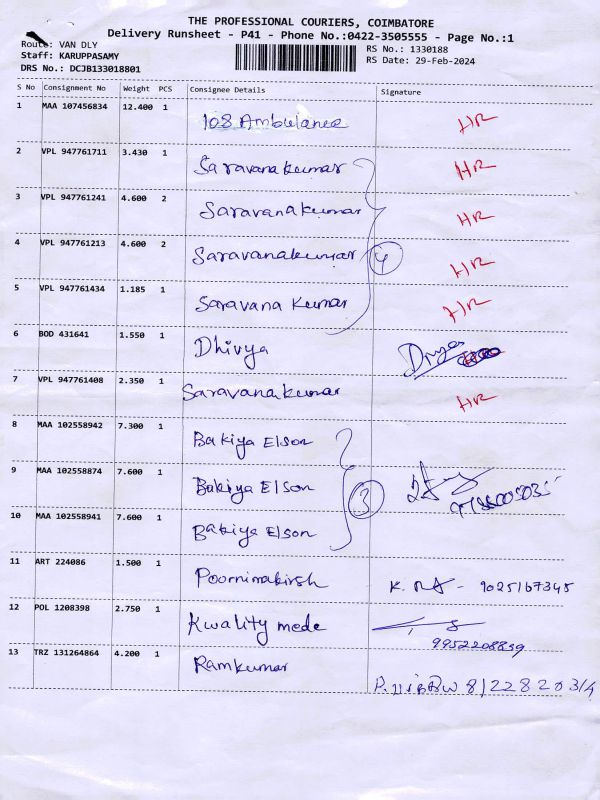 THE PROFESSIONAL COURIERS, COIMBATORE
Delivery Runsheet - P41 - Phone No.:0422-3505555 - Page No.:1
Route: VAN DLY
Staff: KARUPPASAMY
DRS No.: DCJB133018801
RS No.: 1330188
RS Date: 29-Feb-2024
S No Consignment No Weight PCS Consignee Details Signature
1 MAA 107456834 12.400 1 108 Ambulance HR
2 VPL 947761711 3.430 1 Saravanakumar HR
3 VPL 947761241 4.600 2 Saravanakumar HR
4 VPL 947761213 4.600 2 Saravanakumar 4 HR
5 VPL 947761434 1.185 1 Saravana Kumar HR
6 BOD 431641 1.550 1 Dhivya
7 VPL 947761408 2.350 1 Saravanakumar HR
8 MAA 102558942 7.300 1 Bakiya Elson
9 MAA 102558874 7.600 1 Bakiya Elson 3
10 MAA 102558941 7.600 1 Bakiya Elson
11 ART 224086 1.500 1 Poornimakirsh 9025167345
12 POL 1208398 2.750 1 Kwality mede
9952208859
13 TRZ 131264864 4.200 1 Ramkumar